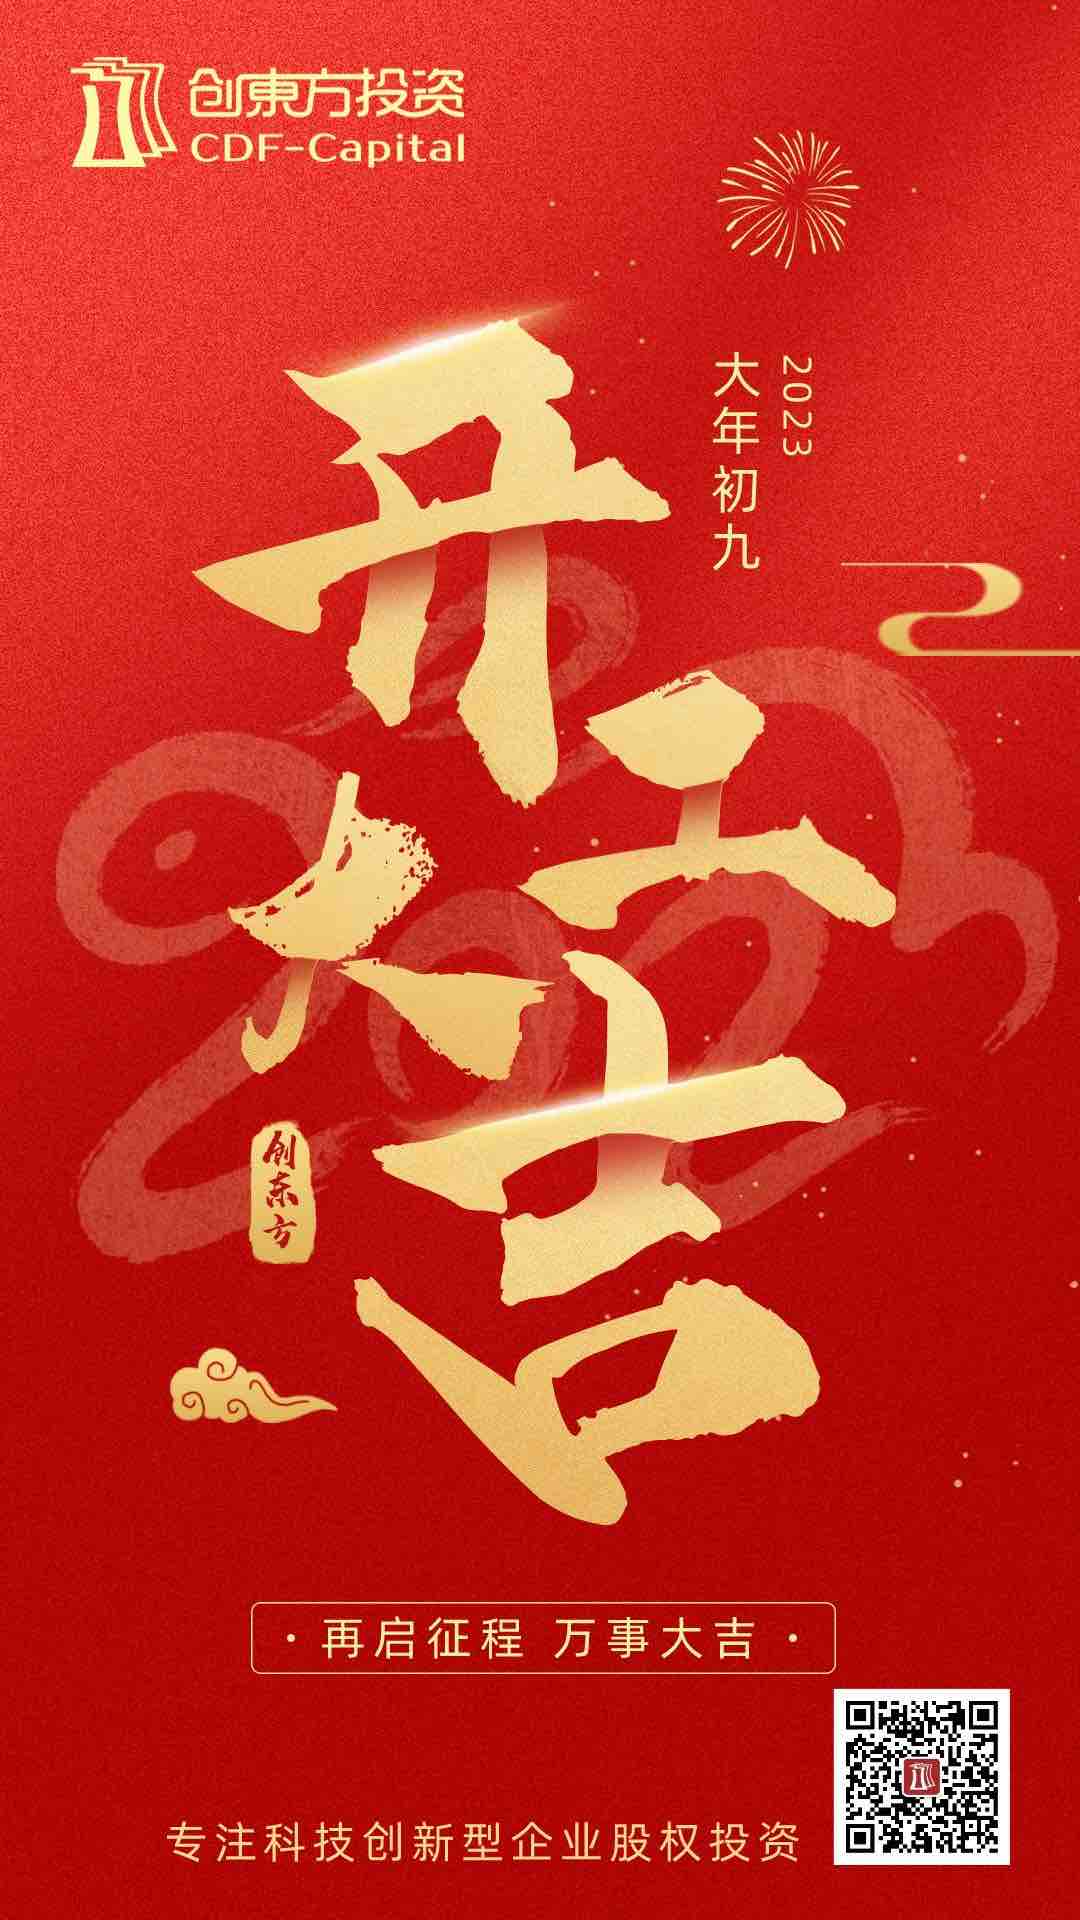 创東方投资
CDF-Capital
2023
大年初九
开工
大吉
创东方
·再启征程 万事大吉·
专注科技创新型企业股权投资